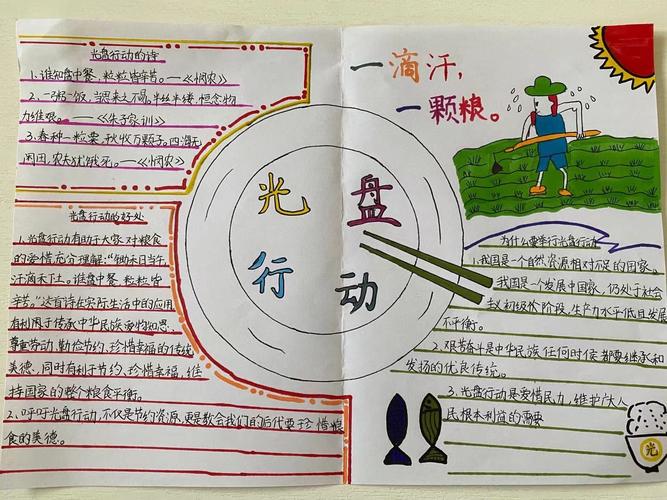 光盘行动的诗
1、谁知盘中餐,粒粒皆辛苦。——《悯农》
2、一粥一饭,当思来之不易,半丝半缕,恒念物
力维艰。——《朱子家训》
3、春种一粒粟,秋收万颗子。四海无
闲田,农夫犹饿死。——《悯农》
光盘行动的好处
1、光盘行动有助于大家对粮食
的爱惜充分理解:“锄禾日当午,
汗滴禾下土。谁盘中餐,粒粒皆
辛苦。”这首诗在实际生活中的应用
有利用于传承中华民族
尊重劳动、勤俭节约、珍惜幸福的传统
美德,同时有利于节约,珍惜幸福,维
持国家的整个粮食平衡。
2、呼吁光盘行动,不仅是节约资源,更是教会我们的后代要珍惜粮
食的美德。
光盘
行动
一滴汗,
一颗粮。
为什么要举行光盘行动
1、我国是一个自然资源相对不足的国家。
我国是一个发展中国家,仍处于社会
主义初级阶段,生产力水平低且发展
不平衡。
2、艰苦奋斗是中华民族任何时候都要继承和
发扬的优良传统。
3、光盘行动是爱惜民力,维护广大人
民根本利益的需要
光